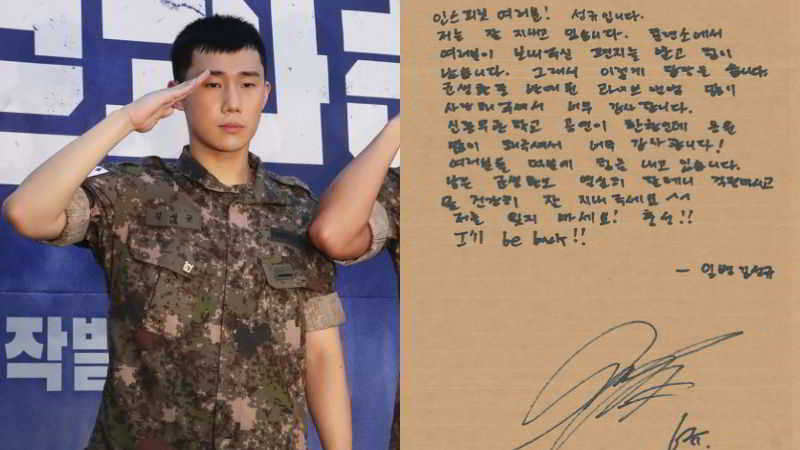 작별
인스피릿 여러분! 성규입니다.
저는 잘 지내고 있습니다. 훈련소에서
여러분이 보내주신 편지를 받고 힘이
났습니다. 그래서 이렇게 답장을 씁니다.
군생활을 라이브 앨범 많이
사랑해주셔서 너무 감사합니다.
신흥무관학교 공연이 한창인데 응원
많이 해주셔서 너무 감사합니다!
여러분들 덕분에 힘을 내고 있습니다.
남은 군생활도 열심히 할테니 걱정마시고
몸 건강히 잘 지내주세요 ^^
저를 잊지 마세요! 충성!!
I'll be back!!
- 일병 김성규